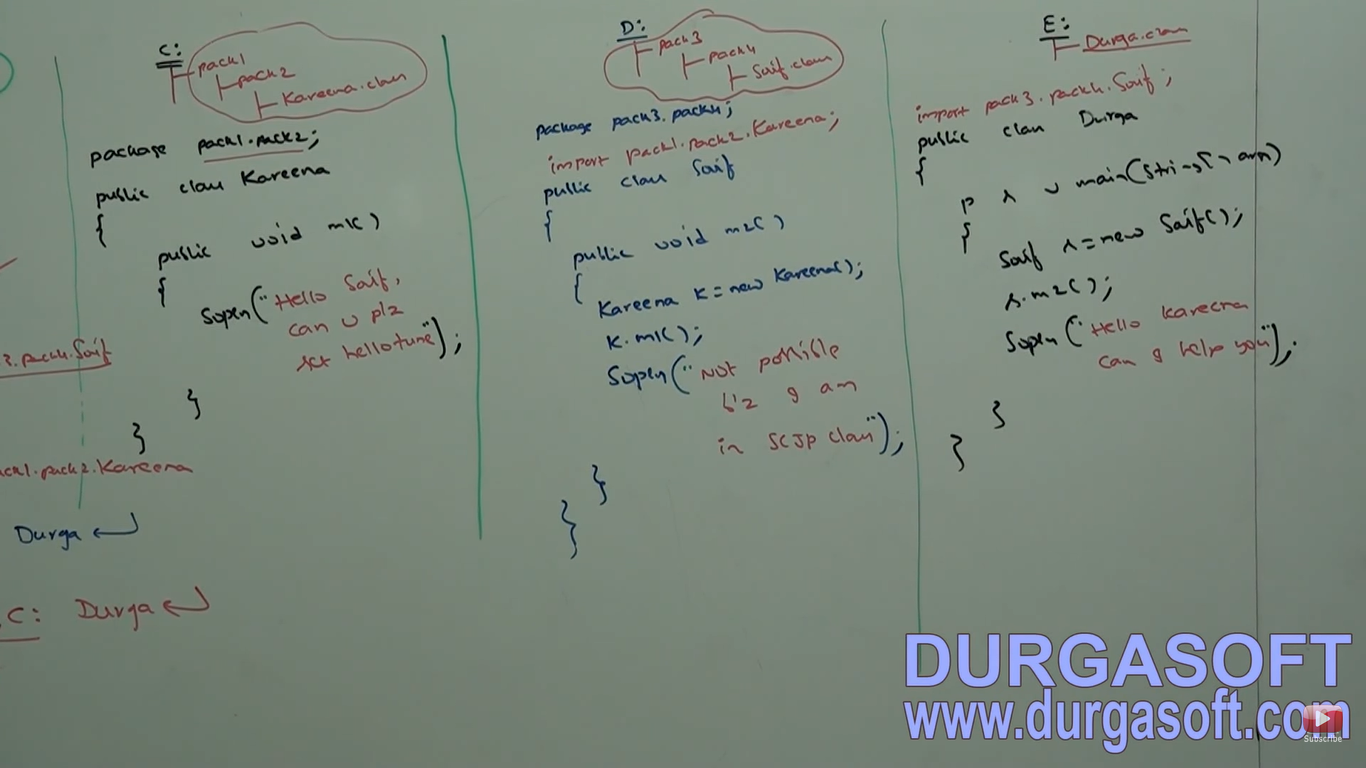 C:
pack1
pack2
Kareena.class
package pack1.pack2;
public class Kareena
{
public void m1()
{
Sopln("Hello Saif,
can u plz
set hellotune");
}
}
3.pack4.Saif
ack1.pack2.Kareena
Durga ↵
C: Durga ↵
D:
pack3
pack4
Saif.class
package pack3.pack4;
import pack1.pack2.Kareena;
public class Saif
{
public void m2()
{
Kareena K = new Kareena();
K.m1();
Sopln("Not possible
b'z I am
in SCJP class");
}
}
E:
Durga.class
import pack3.pack4.Saif;
public class Durga
{
p s v main(String[] args)
{
Saif s = new Saif();
s.m2();
Sopln("Hello Kareena
can I help you");
}
}
DURGASOFT
www.durgasoft.com
Subscribe